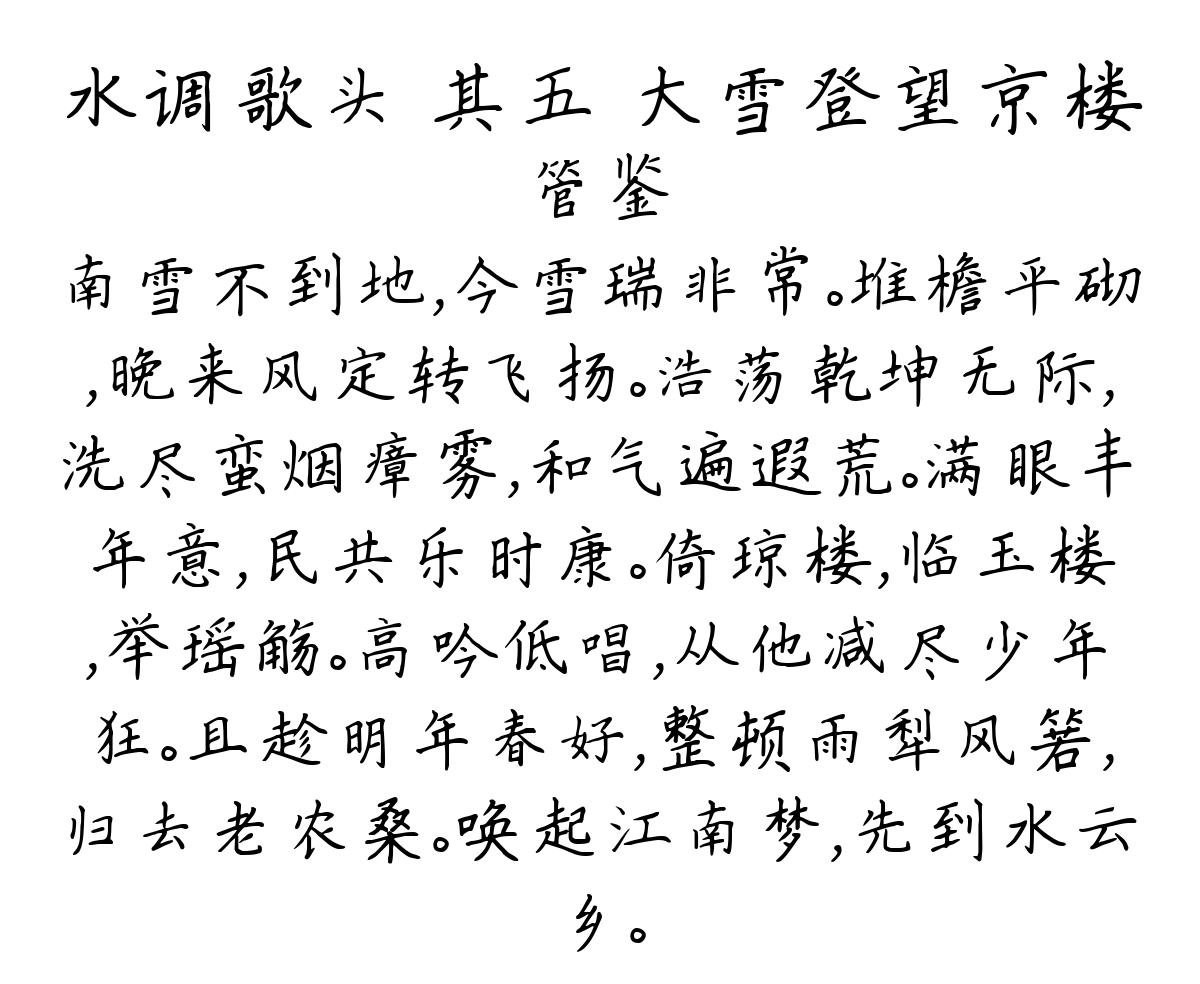 水调歌头 其五 大雪登望京楼
管鉴
南雪不到地,今雪瑞非常。堆檐平砌
,晚来风定转飞扬。浩荡乾坤无际,
洗尽蛮烟瘴雾,和气遍遐荒。满眼丰
年意,民共乐时康。倚琼楼,临玉楼
,举瑶觞。高吟低唱,从他减尽少年
狂。且趁明年春好,整顿雨犁风箬,
归去老农桑。唤起江南梦,先到水云
乡。